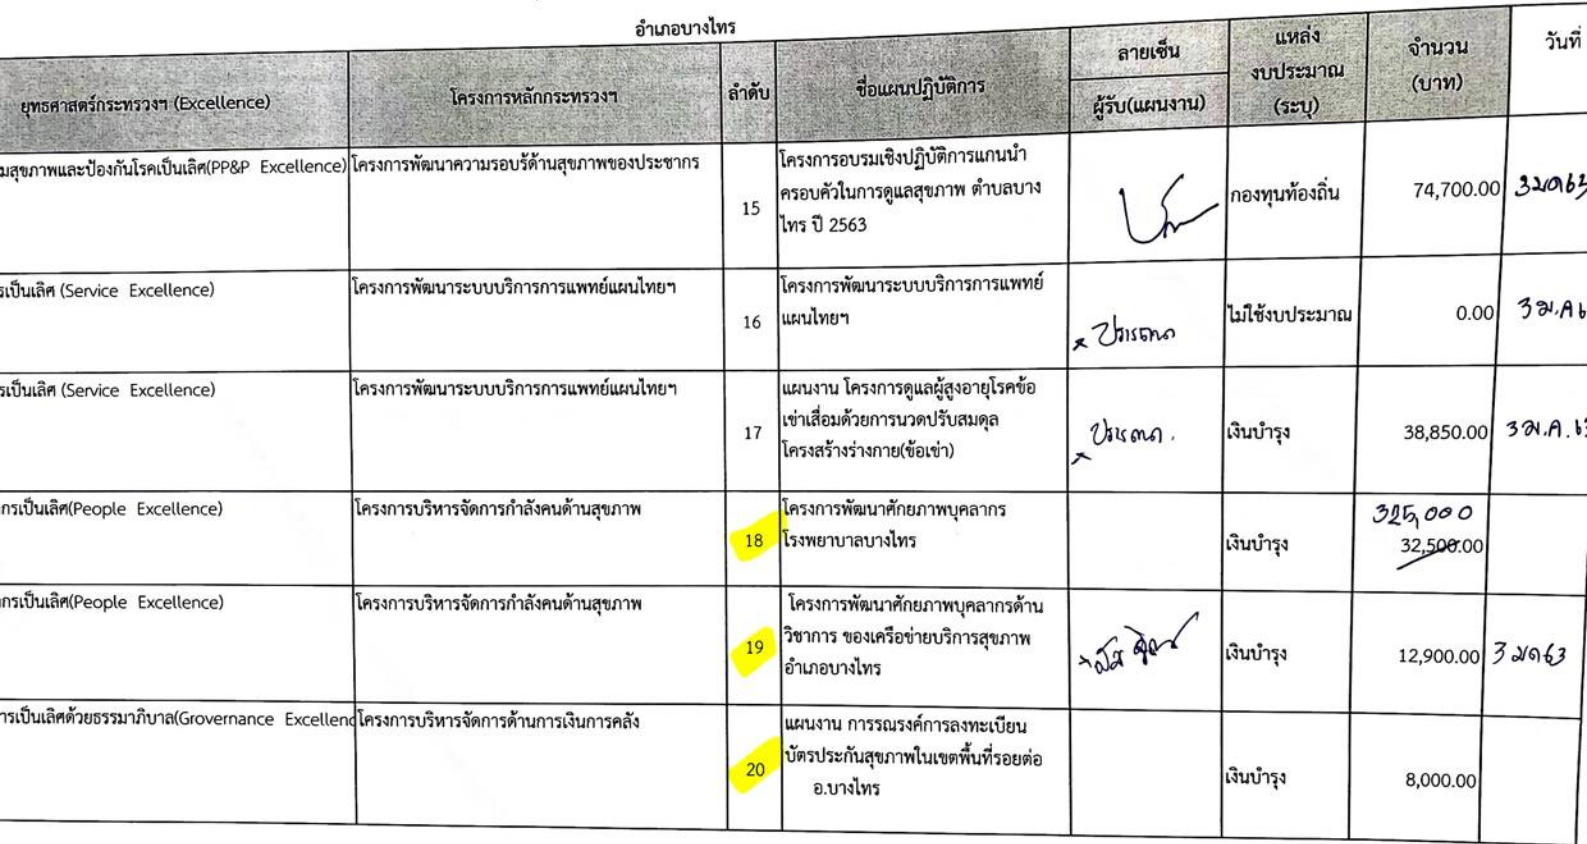 อำเภอบางไทร
ยุทธศาสตร์กระทรวงฯ (Excellence)
โครงการหลักกระทรวงฯ
ลำดับ
ชื่อแผนปฏิบัติการ
ลายเซ็น
ผู้รับ(แผนงาน)
แหล่ง
งบประมาณ
(ระบุ)
จำนวน
(บาท)
วันที่
มสุขภาพและป้องกันโรคเป็นเลิศ(PP&P Excellence)
โครงการพัฒนาความรอบรู้ด้านสุขภาพของประชากร
15
โครงการอบรมเชิงปฏิบัติการแกนนำ
ครอบครัวในการดูแลสุขภาพ ตำบลบาง
ไทร ปี 2563
กองทุนท้องถิ่น
74,700.00
3 มค 63
รเป็นเลิศ (Service Excellence)
โครงการพัฒนาระบบบริการการแพทย์แผนไทยฯ
16
โครงการพัฒนาระบบบริการการแพทย์
แผนไทยฯ
ไม่ใช้งบประมาณ
0.00
3 ม.ค 6
รเป็นเลิศ (Service Excellence)
โครงการพัฒนาระบบบริการการแพทย์แผนไทยฯ
17
แผนงาน โครงการดูแลผู้สูงอายุโรคข้อ
เข่าเสื่อมด้วยการนวดปรับสมดุล
โครงสร้างร่างกาย(ข้อเข่า)
เงินบำรุง
38,850.00
3 ม.ค. 63
กรเป็นเลิศ(People Excellence)
โครงการบริหารจัดการกำลังคนด้านสุขภาพ
18
โครงการพัฒนาศักยภาพบุคลากร
โรงพยาบาลบางไทร
เงินบำรุง
325,000
32,500.00
กรเป็นเลิศ(People Excellence)
โครงการบริหารจัดการกำลังคนด้านสุขภาพ
19
โครงการพัฒนาศักยภาพบุคลากรด้าน
วิชาการ ของเครือข่ายบริการสุขภาพ
อำเภอบางไทร
เงินบำรุง
12,900.00
3 มค 63
ารเป็นเลิศด้วยธรรมาภิบาล(Grovernance Excellenc
โครงการบริหารจัดการด้านการเงินการคลัง
20
แผนงาน การรณรงค์การลงทะเบียน
บัตรประกันสุขภาพในเขตพื้นที่รอยต่อ
อ.บางไทร
เงินบำรุง
8,000.00